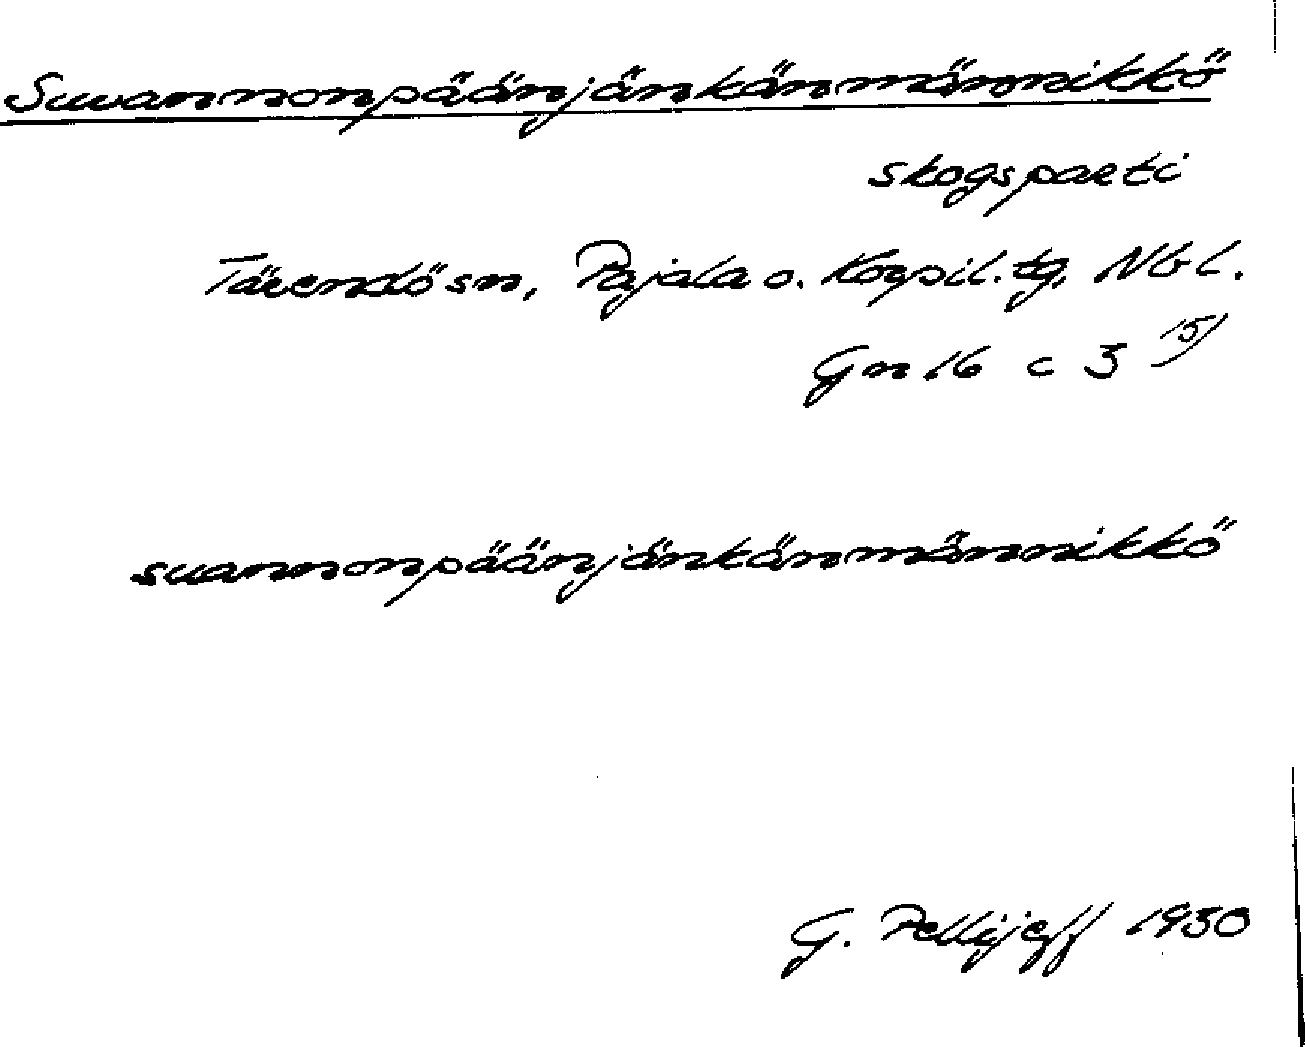 Suvannonpäänjänkänmännikkö
skogsparti
Tärendö sn, Pajala o. Korpil. tg, Nbl.
Gn 16 c 3 15)
suannonpäänjänkänmännikkö
G. Pellijeff 1950